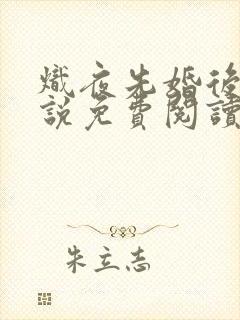 熾夜先婚後
說免費閱讀
朱立志